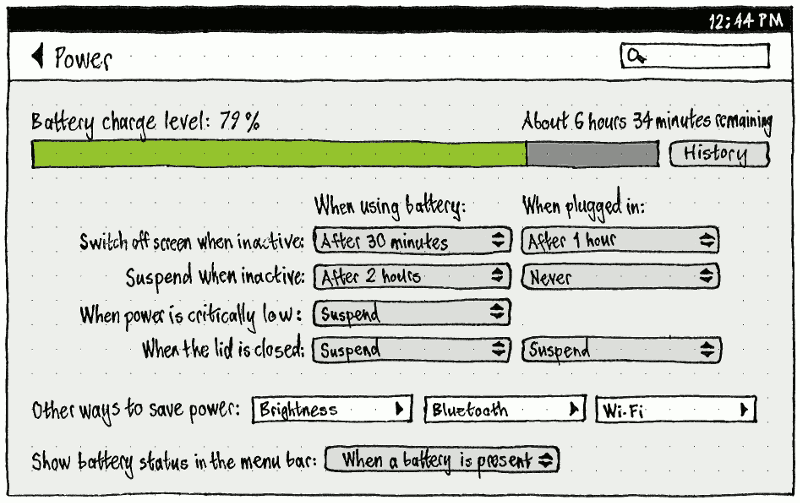 12:44 PM
Power
Battery charge level: 79% About 6 hours 34 minutes remaining
History
When using battery: When plugged in:
Switch off screen when inactive: After 30 minutes After 1 hour
Suspend when inactive: After 2 hours Never
When power is critically low: Suspend
When the lid is closed: Suspend Suspend
Other ways to save power: Brightness Bluetooth Wi-Fi
Show battery status in the menu bar: When a battery is present